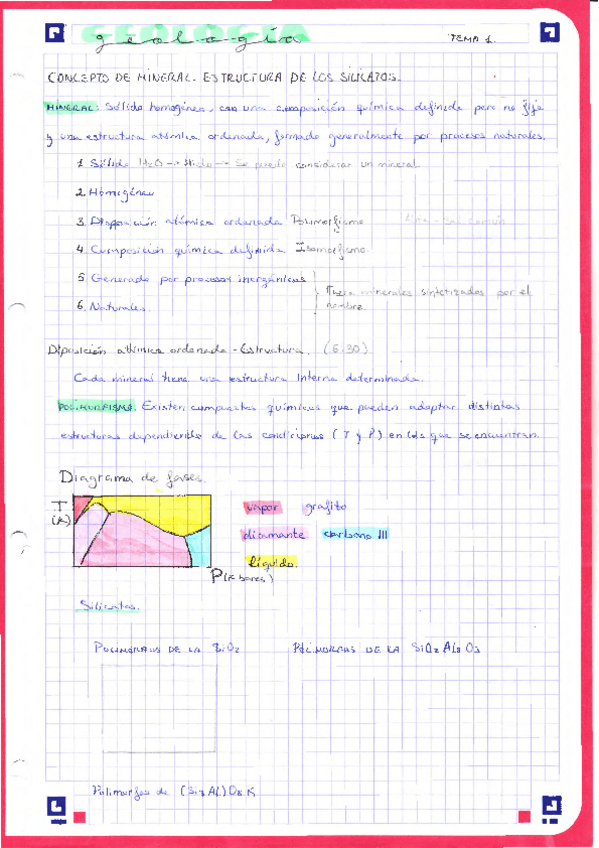 GEOLOGÍA
geología
TEMA 1.
CONCEPTO DE MINERAL. ESTRUCTURA DE LOS SILICATOS.
MINERAL: Sólido homogéneo, con una composición química definida pero no fija
y una estructura atómica ordenada, formado generalmente por procesos naturales.
1. Sólido H2O → Hielo → Se puede considerar un mineral
2. Homogéneo
3. Disposición atómica ordenada Polimorfismo
4. Composición química definida Isomorfismo
5. Generado por procesos inorgánicos
6. Naturales.
minerales sintetizados por el
hombre
Disposición atómica ordenada - Estructura. (6:30)
Cada mineral tiene una estructura interna determinada.
POLIMORFISMO: Existen compuestos químicos que pueden adoptar distintas
estructuras dependiendo de las condiciones (T y P) en las que se encuentran.
Diagrama de fases.
T
(K)
vapor grafito
diamante carbono III
líquido.
P(K bares)
Silicatos.
POLIMORFOS DE LA SiO2 POLIMORFOS DE LA SiO2 Al2 O3
Polimorfos de (Si3 Al)O8 K